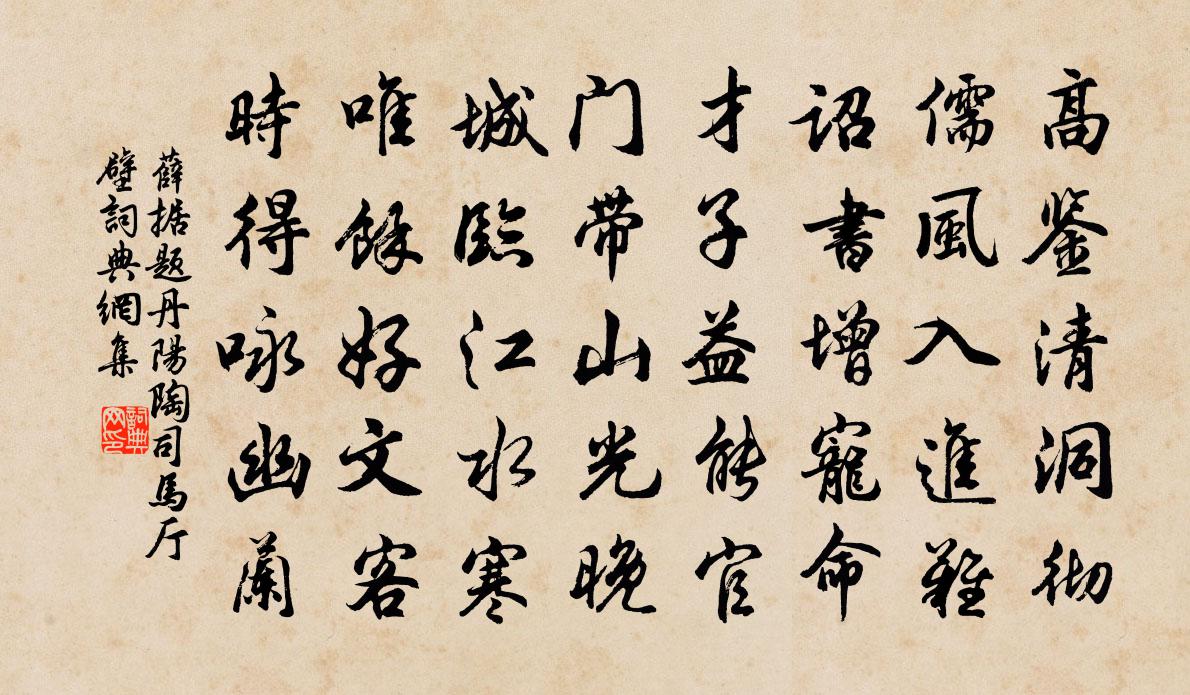 高鉴清洞彻
儒風入進難
詔書增寵命
才子益能官
门带山光晚
城臨江水寒
唯餘好文客
時得咏幽蘭
薛据题丹陽陶司馬厅
壁詞典網集
詞典网印